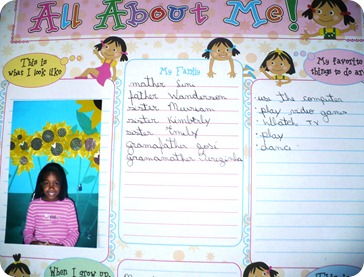 All About Me!
This is
what I look like
My Family
mother Luri
father Wanderson
sister Mirriam
sister Kimberly
sister Emily
gramofather José
granamother Terezinha
My favorite
things to do are
use the computer
play video games
Watch TV
play
danci
When I grow up
This is